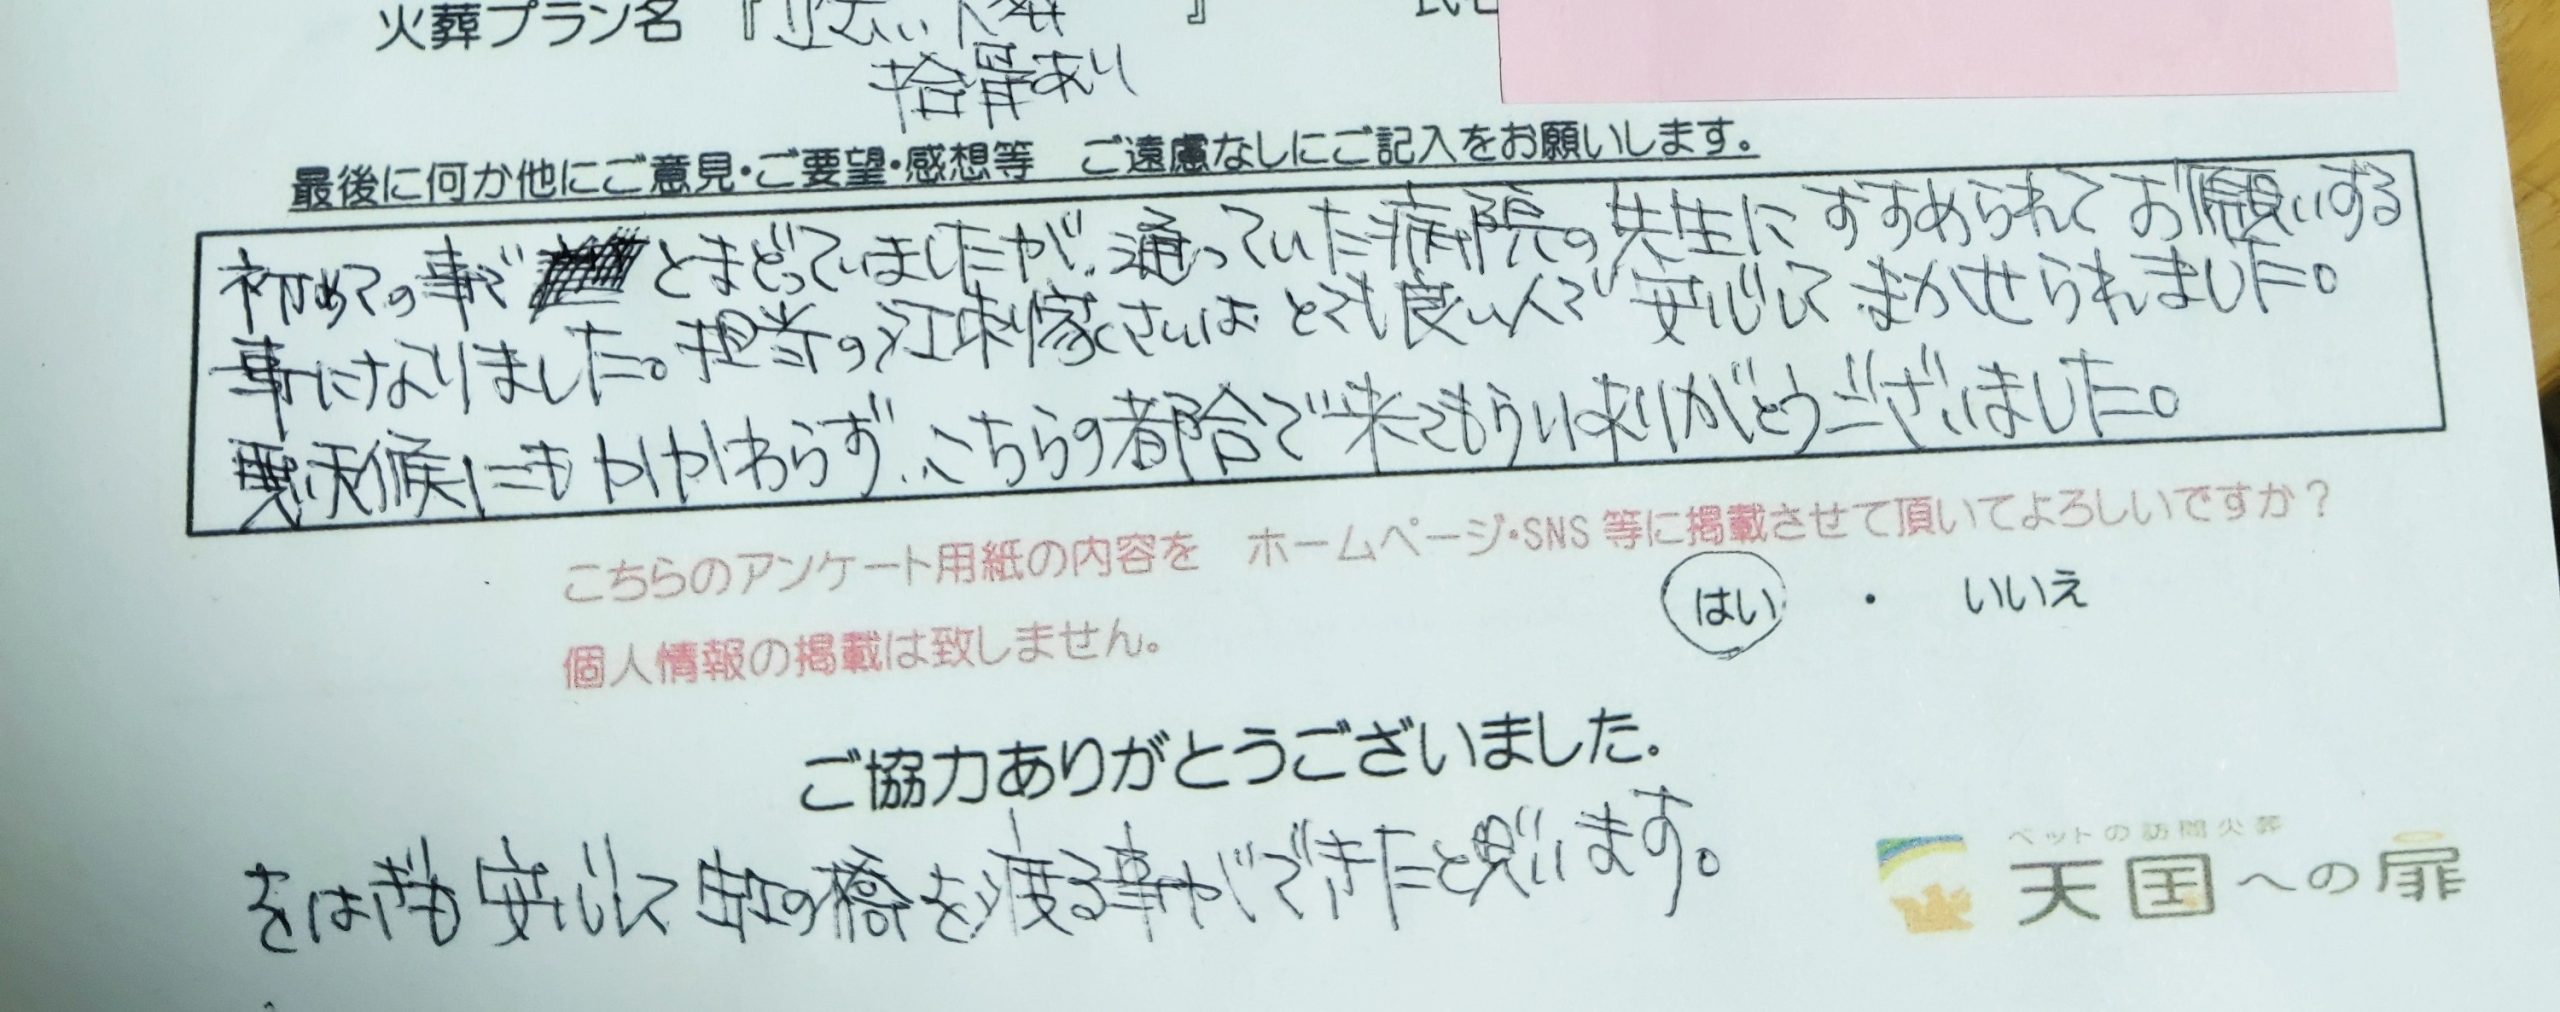 火葬プラン名 『 』
拾骨あり
最後に何か他にご意見・ご要望・感想等 ご遠慮なしにご記入をお願いします。
初めての事で とまどっていましたが、通っていた病院の先生にすすめられてお願いする
事になりました。担当の江刺家さんはとても良い人で安心してまかせられました。
悪天候にもかかわらず、こちらの都合で来てもらいありがとうございました。
こちらのアンケート用紙の内容を ホームページ・SNS 等に掲載させて頂いてよろしいですか？
はい ・ いいえ
個人情報の掲載は致しません。
ご協力ありがとうございました。
安心して虹の橋を渡る事ができたと思います。
ペットの訪問火葬
天国への扉